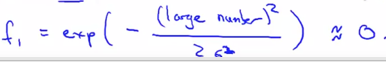 f₁ = exp( - (large number)² / 2σ² ) ≈ 0.